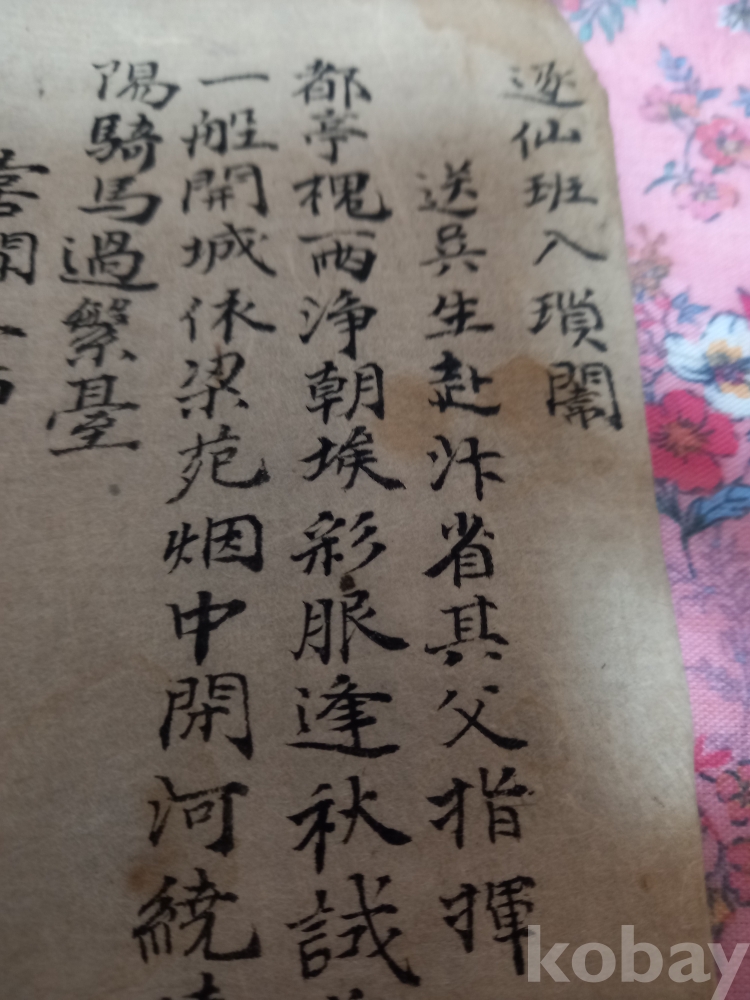 逐仙班入瑣闈
送吳生赴汴省其父指揮
都亭槐雨淨朝埃彩服逢秋誠
一般開城依梁苑烟中開河繞
陽騎馬過繁臺
喜聞
kobay